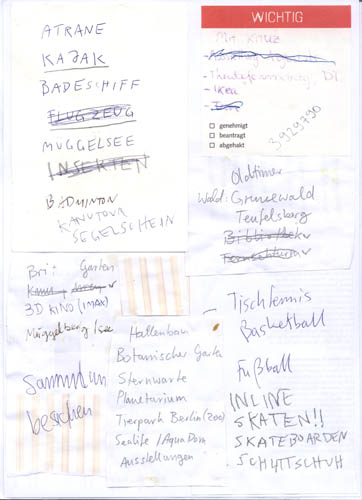 ATRANE
KAJAK
BADESCHIFF
FLUGZEUG
MÜGGELSEE
INSEKTEN
BADMINTON
KANUTOUR
SEGELSCHEIN
WICHTIG
Mit
- Ikea
genehmigt
beantragt
abgehakt
3929790
Oldtimer
Wald: Grunewald
Teufelsberg
Bibliothek
Fernsehturm
Bri: Garten
3D KINO (IMAX)
Müggelberg/see
Sammlun
besuchen
Hallenbad
Botanischer Garten
Sternwarte
Planetarium
Tierpark Berlin (Zoo)
Sealife / AquaDom
Ausstellungen
Tischtennis
Basketball
Fußball
INLINE
SKATEN!!
SKATEBOARDEN
SCHLITTSCHUH